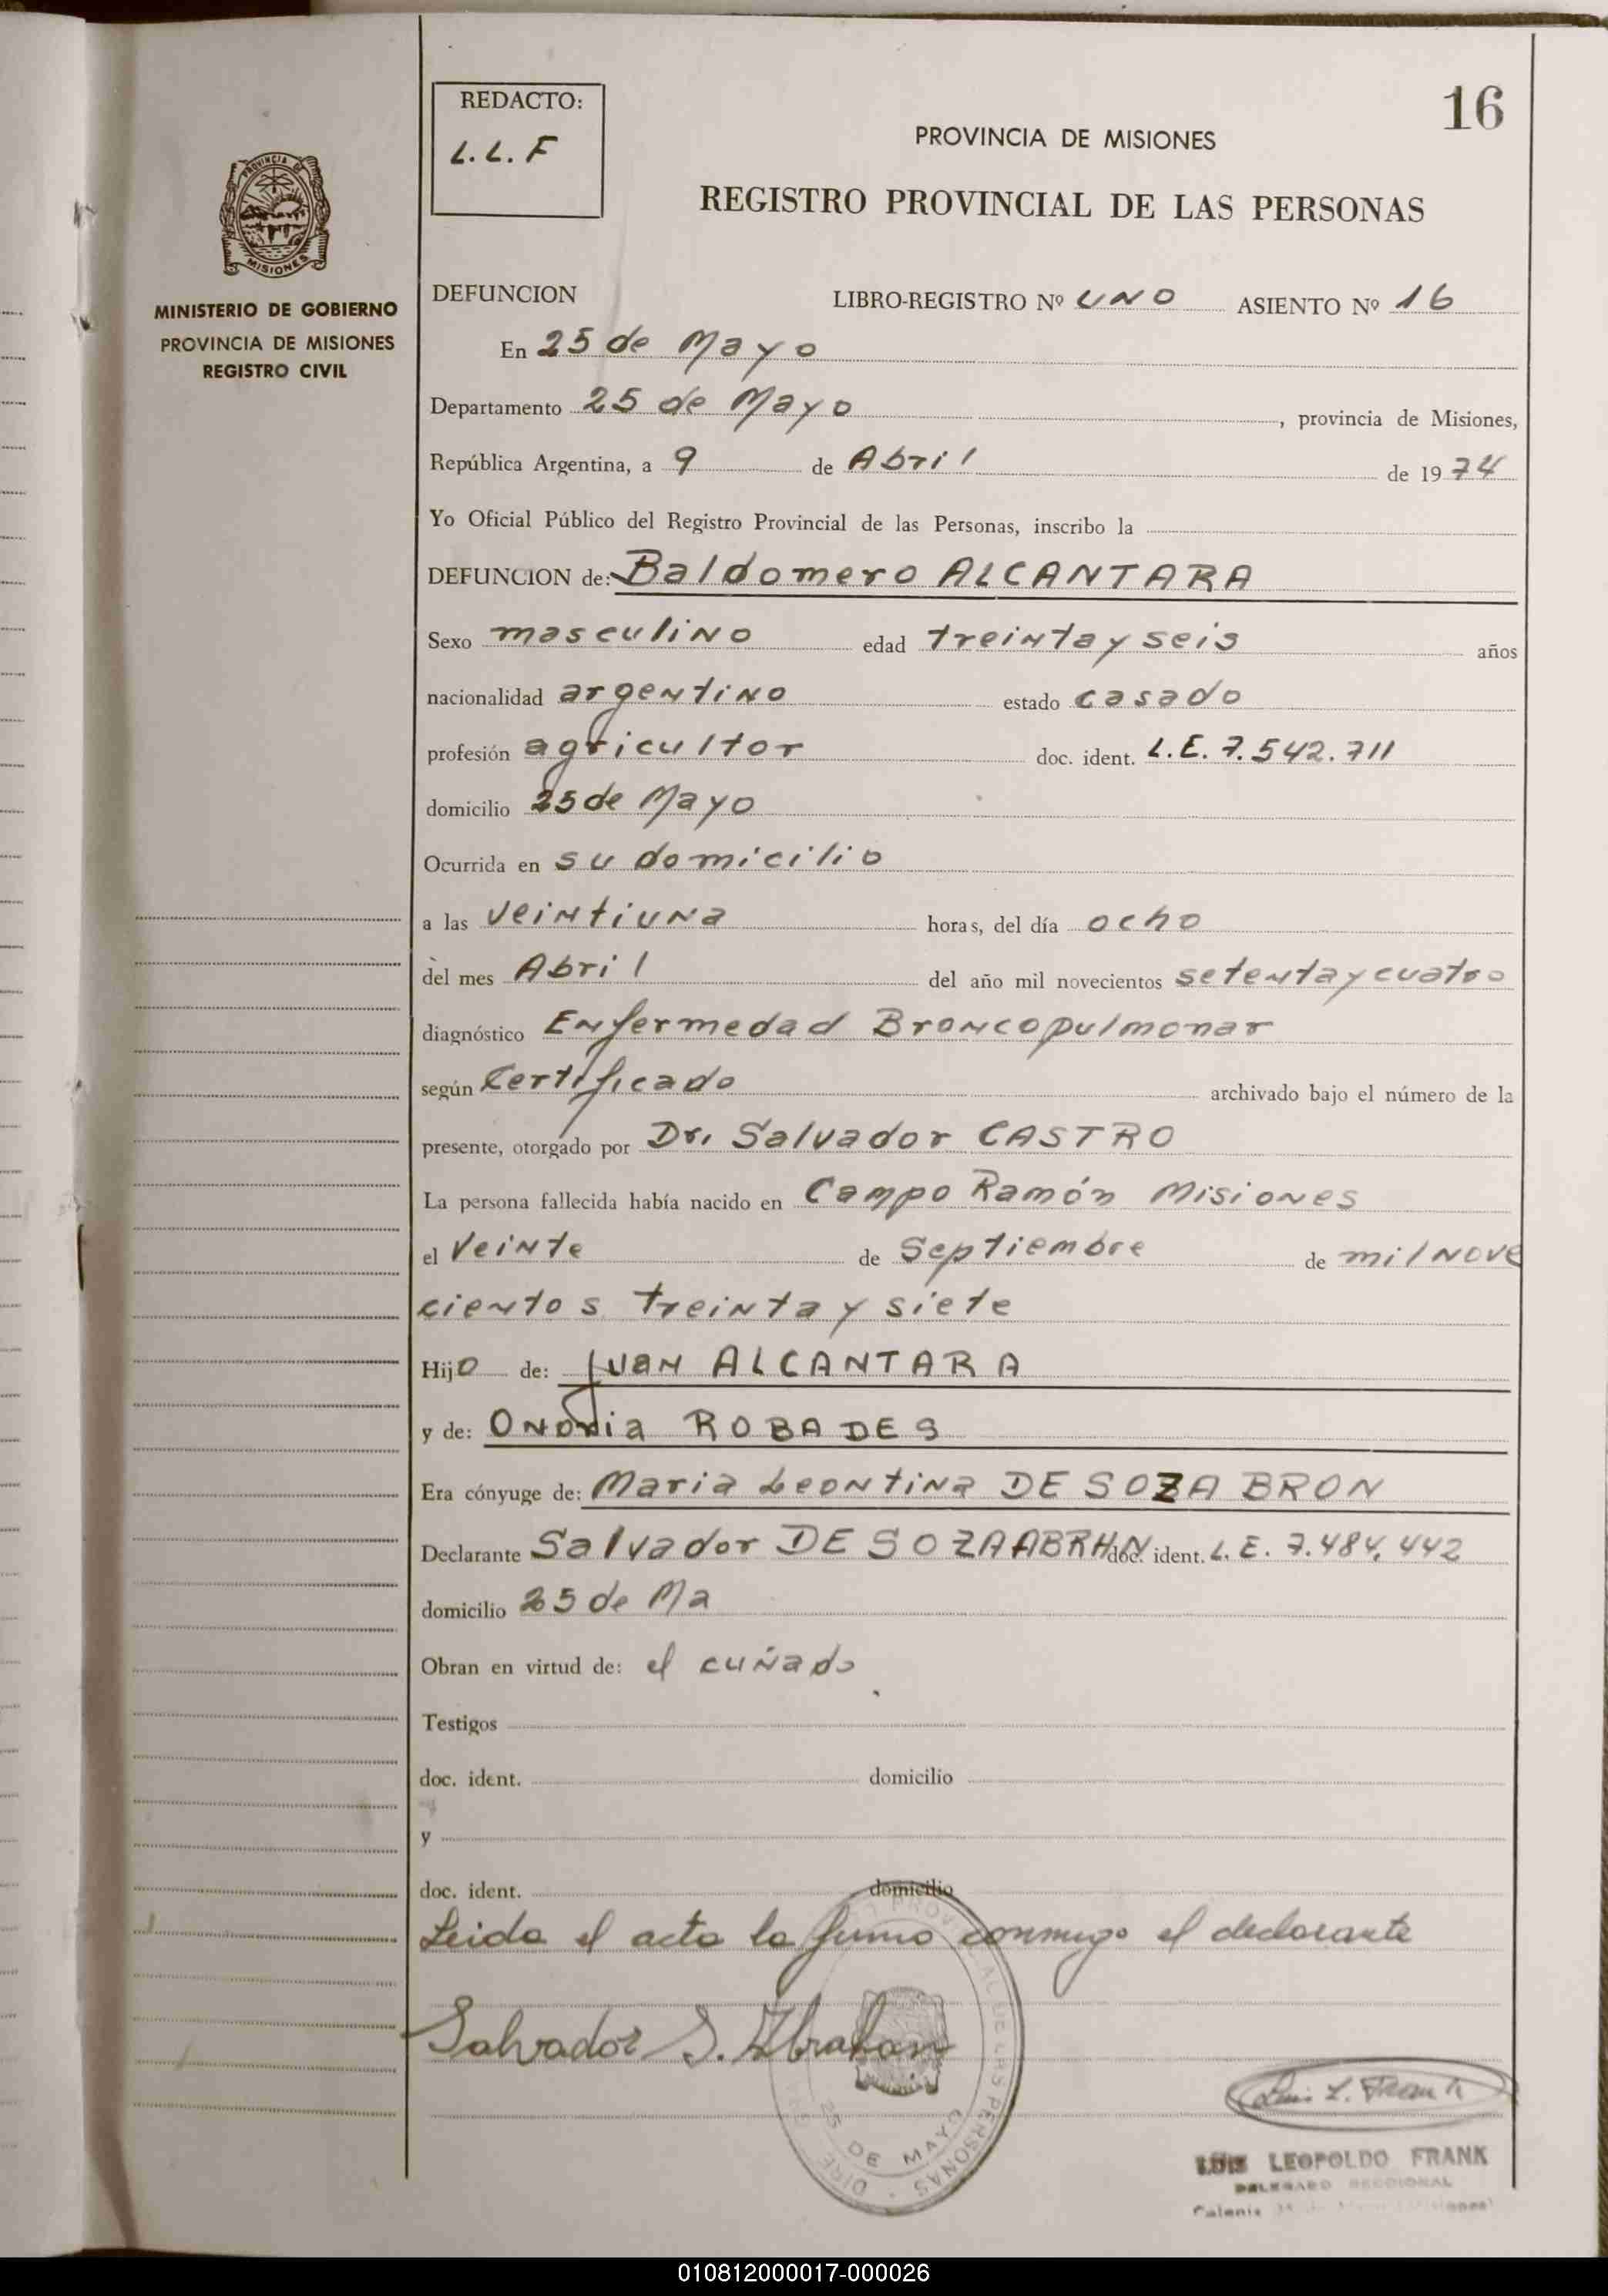 REDACTO:
L.L.F
16
PROVINCIA DE MISIONES
REGISTRO PROVINCIAL DE LAS PERSONAS
PROVINCIA DE
MISIONES
MINISTERIO DE GOBIERNO
PROVINCIA DE MISIONES
REGISTRO CIVIL
DEFUNCION LIBRO-REGISTRO Nº UNO ASIENTO Nº 16
En 25 de Mayo
Departamento 25 de Mayo, provincia de Misiones,
República Argentina, a 9 de Abril de 1974
Yo Oficial Público del Registro Provincial de las Personas, inscribo la
DEFUNCION de: Baldomero ALCANTARA
Sexo masculino edad treinta y seis años
nacionalidad argentino estado casado
profesión agricultor doc. ident. L.E. 7.542.711
domicilio 25 de Mayo
Ocurrida en su domicilio
a las veintiuna horas, del día ocho
del mes Abril del año mil novecientos setenta y cuatro
diagnóstico Enfermedad Broncopulmonar
según Certificado archivado bajo el número de la
presente, otorgado por Dr. Salvador CASTRO
La persona fallecida había nacido en Campo Ramón Misiones
el Veinte de Septiembre de mil nove
cientos treinta y siete
Hijo de: Juan ALCANTARA
y de: Onoria ROBADES
Era cónyuge de: Maria Leontina DE SOZA BRON
Declarante Salvador DE SOZA ABRHN doc. ident. L.E. 7.484.442
domicilio 25 de Ma
Obran en virtud de: el cuñado
Testigos
doc. ident. domicilio
y
doc. ident. domicilio
Leida el acta la firmo conmigo el declarante
Salvador S. Abrahan
25 DE MAYO
Luis L. Frank
LUIS LEOPOLDO FRANK
DELEGADO SECCIONAL
010812000017-000026